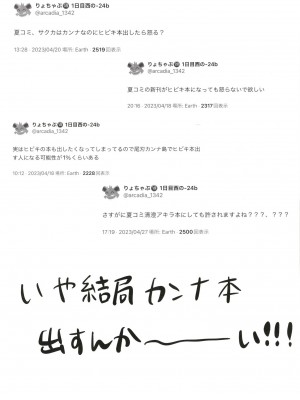 りょちゃぶ⑱ 1日目西の-24b
@arcadia_1342
夏コミ、サクカはカンナなのにヒビキ本出したら怒る？
13:28 · 2023/04/20 場所: Earth · 2519回表示
りょちゃぶ⑱ 1日目西の-24b
@arcadia_1342
夏コミの新刊がヒビキ本になっても怒らないで欲しい
20:16 · 2023/04/18 場所: Earth · 2317回表示
りょちゃぶ⑱ 1日目西の-24b
@arcadia_1342
実はヒビキの本も出したくなってしまってるので尾刃カンナ島でヒビキ本出
す人になる可能性が1%くらいある
10:12 · 2023/04/18 場所: Earth · 2228回表示
りょちゃぶ⑱ 1日目西の-24b
@arcadia_1342
さすがに夏コミ清澄アキラ本にしても許されますよね？？？、？？？
17:19 · 2023/04/27 場所: Earth · 2500回表示
いや結局カンナ本
出すんか〜い!!!